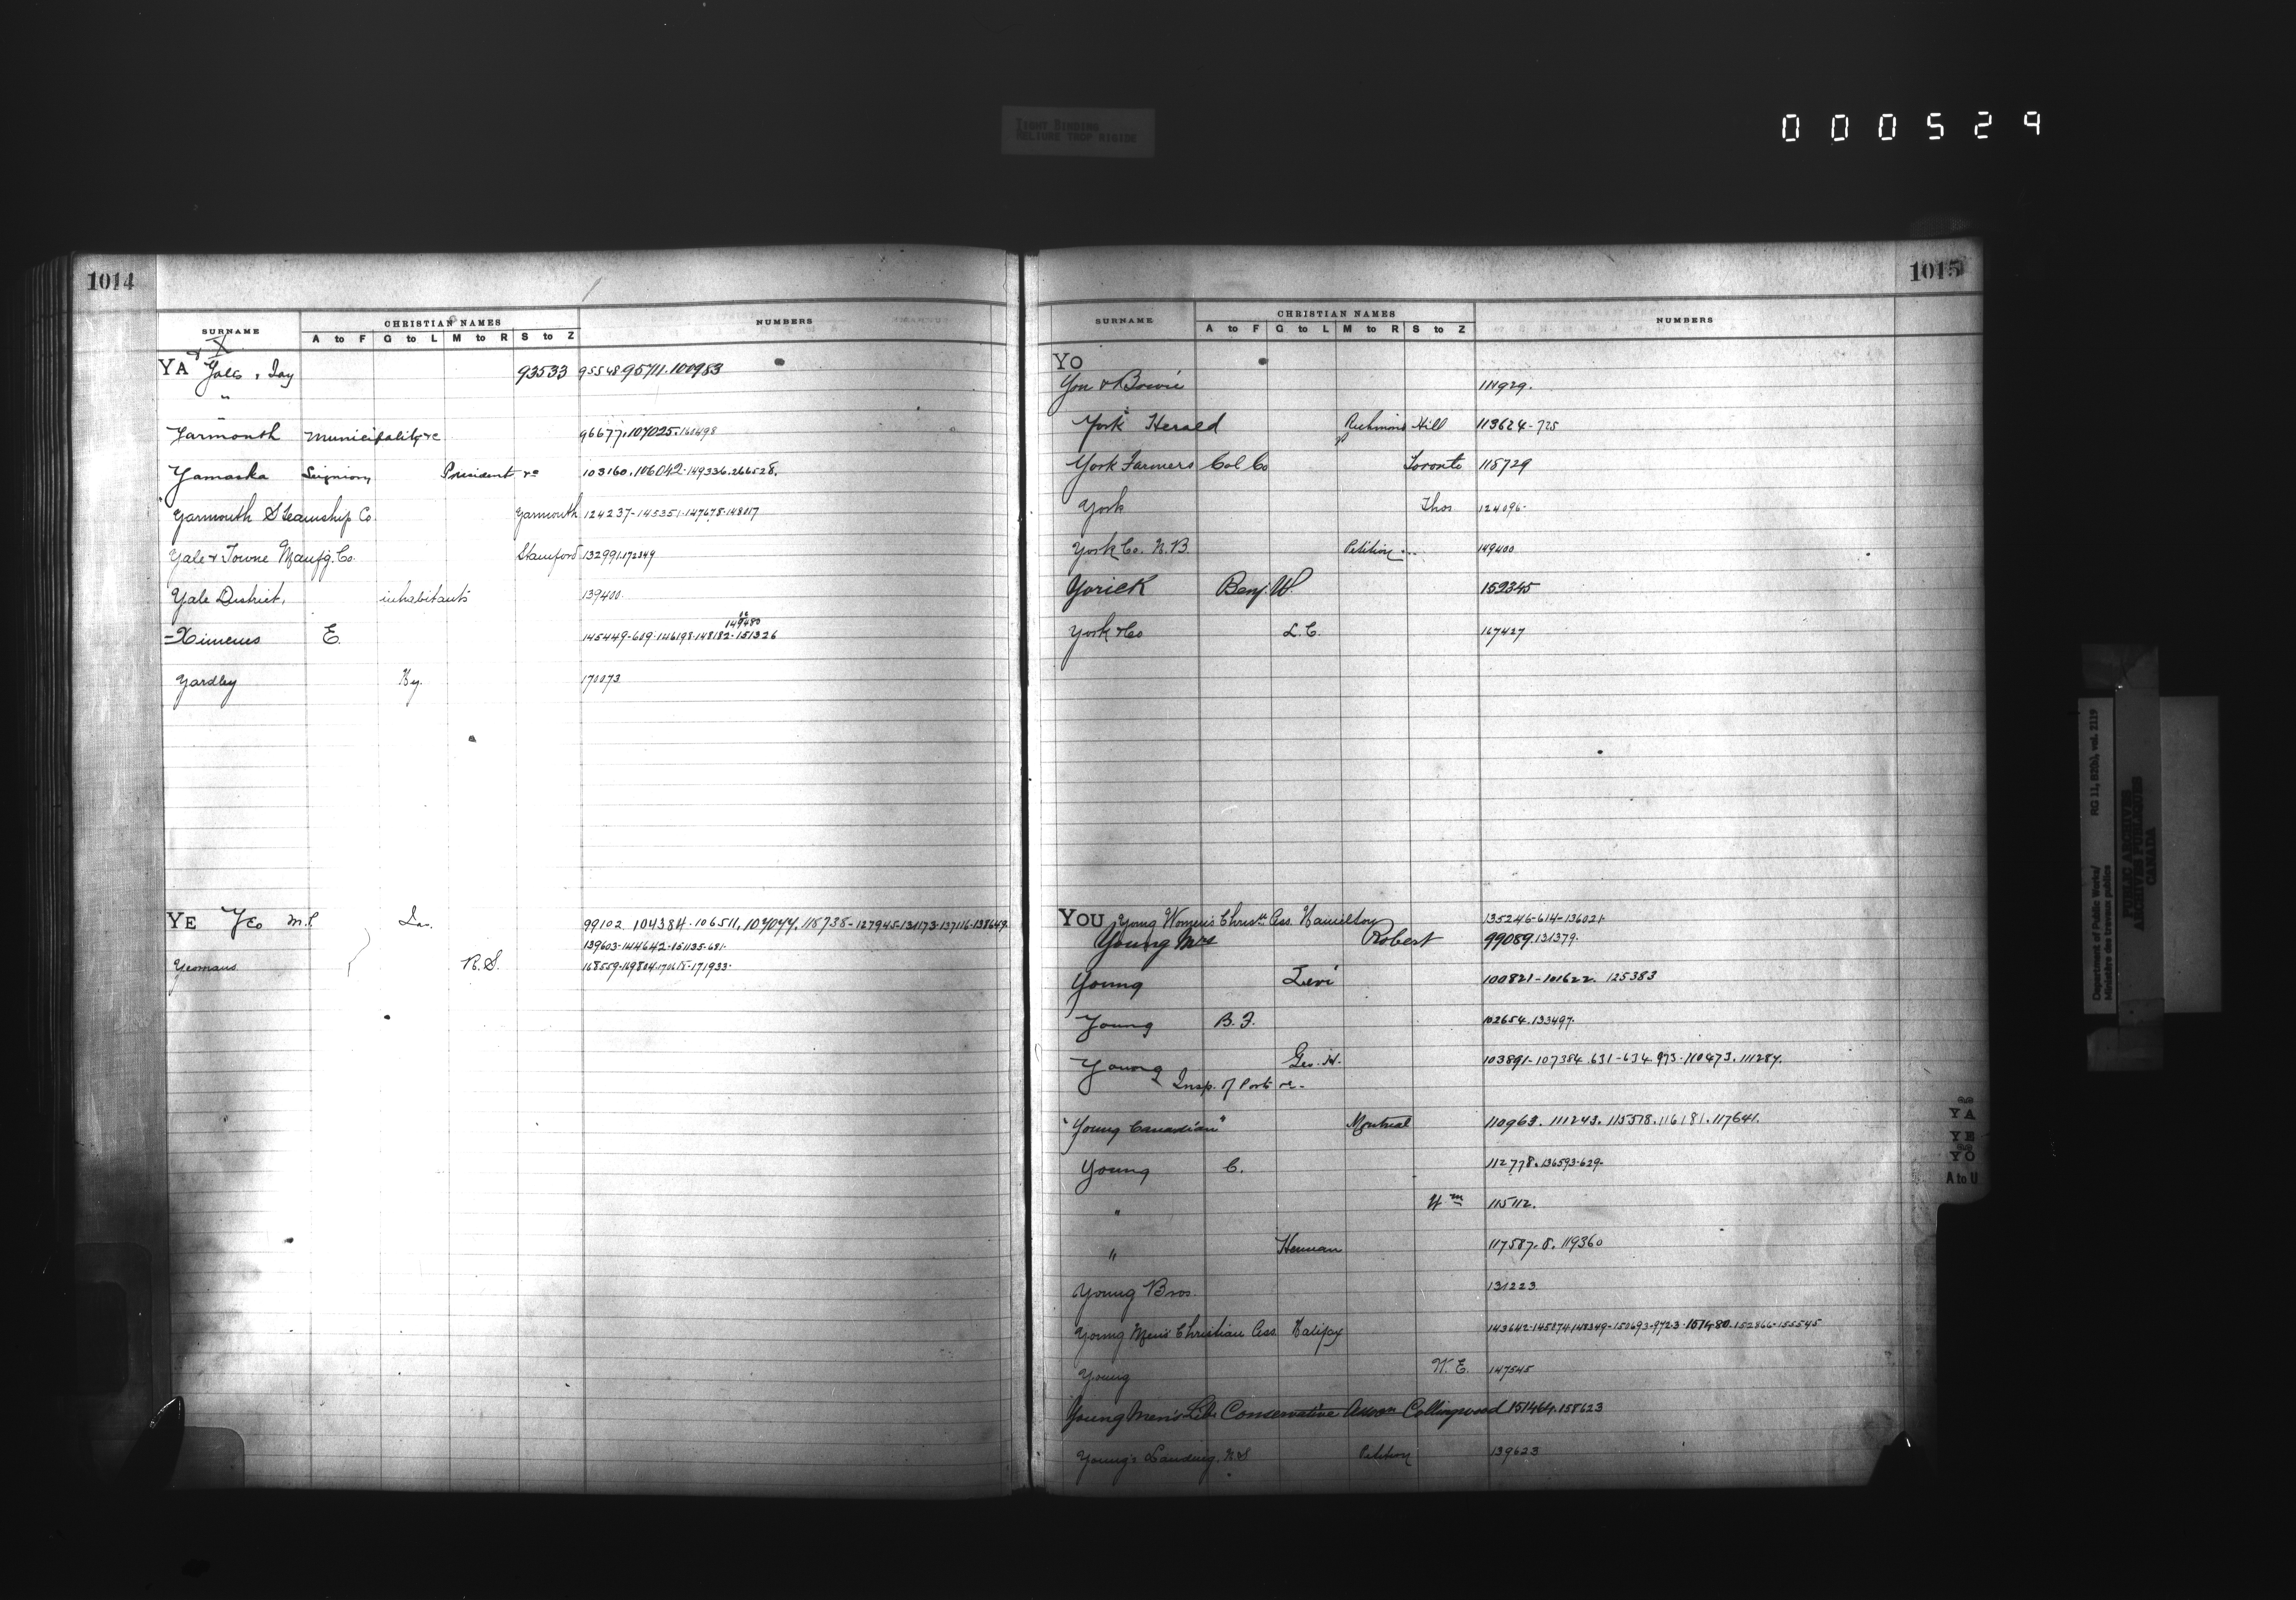 000529
TIGHT BINDING
RELIURE TROP RIGIDE
1014
SURNAME CHRISTIAN NAMES NUMBERS
A to F G to L M to R S to Z
& X
YA Yale, Jay 93533 95548 95711. 100983
"
Yarmouth Municipality &c 96677. 107025. 160498
Yamaska Seigniory President &c 103160. 106042. 149336. 266528.
Yarmouth Steamship Co. Yarmouth 124237-145351-147678-148017
Yale & Towne Manfg. Co. Stamford 132991.172349
Yale District, inhabitants 139400.
149480
=Ximenes E. 145449-609-146198-148182-151326
Yardley Hy. 170073
YE Yeo M.P. 99102 104384. 106511. 107077. 118738-127945-131173-137116-138649.
139603-144642-151135-681.
Yeomans R.S. 168559-169804-170618-171933.
1015
SURNAME CHRISTIAN NAMES NUMBERS
A to F G to L M to R S to Z
YO
Yon & Bowie 111929.
York Herald Richmond Hill 113624-725
York Farmers Col Co Toronto 118729
York Thos 124096.
York Co. N.B. Petition 149400
Yorick Benj. W. 159345
York & Co L.C. 167427
YOU Young Women's Christn Ass. Hamilton 135246-614-136021.
Young Mrs Robert 99089.131379.
Young Levi 100821-101622. 125383
Young B.F. 102654.133497.
Young Geo. H. 103891-107384.631-634 973.110473. 111287.
Insp. of Port &c.
"Young Canadian" Montreal 110963. 111243. 115578. 116181. 117641.
Young C. 112778.136593-629.
" Wm 115112.
" Herman 117587.8. 119360
Young Bros. 131223.
Young Men's Christian Ass. Halifax 143642-145874-148349-150693-9723-151480-152866-155545
Young W.E. 147545
Young Men's Lib. Conservative Assn Collingwood 151464.158623
Young's Landing. N.S Petition 139623
YA
YE
YO
A to U
Department of Public Works/
Ministère des travaux publics
RG 11, B2(b), vol. 2119
PUBLIC ARCHIVES
ARCHIVES PUBLIQUES
CANADA